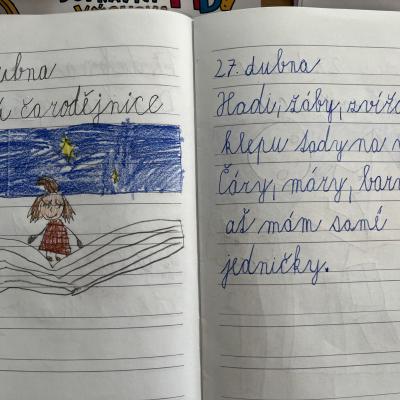 dubna
čarodějnice
27. dubna
Hadi, žáby,
klepu tady na
Čáry, máry,
ať mám samé
jedničky.